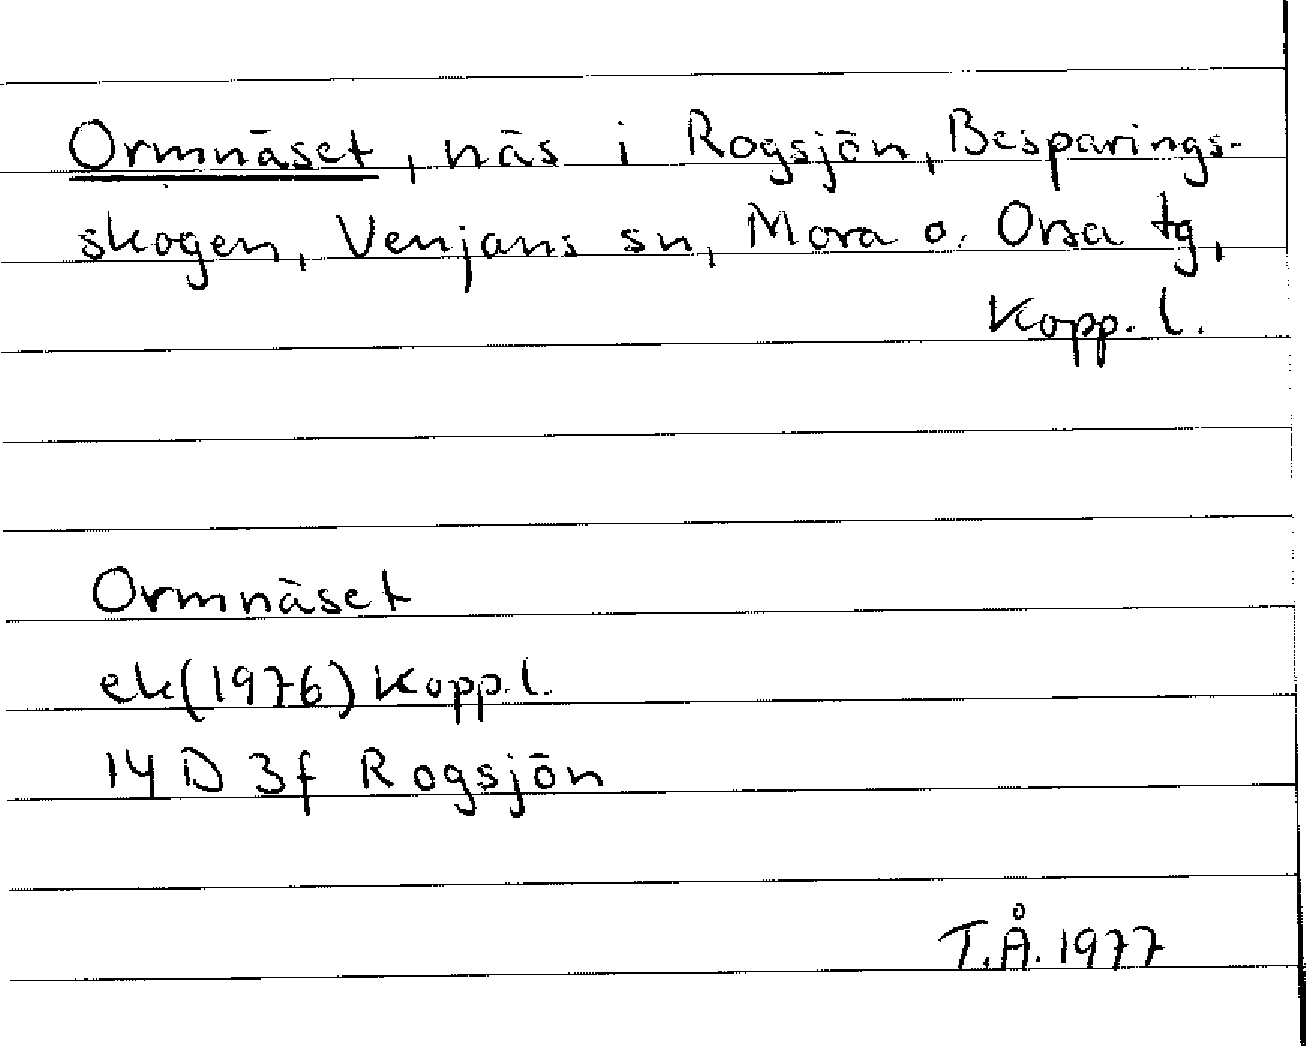 Ormnäset, näs i Rogsjön, Besparings-
skogen, Venjans sn, Mora o. Orsa tg,
Kopp. l.
Ormnäset
ek(1976) Kopp. l.
14 D 3f Rogsjön
T.Å. 1977